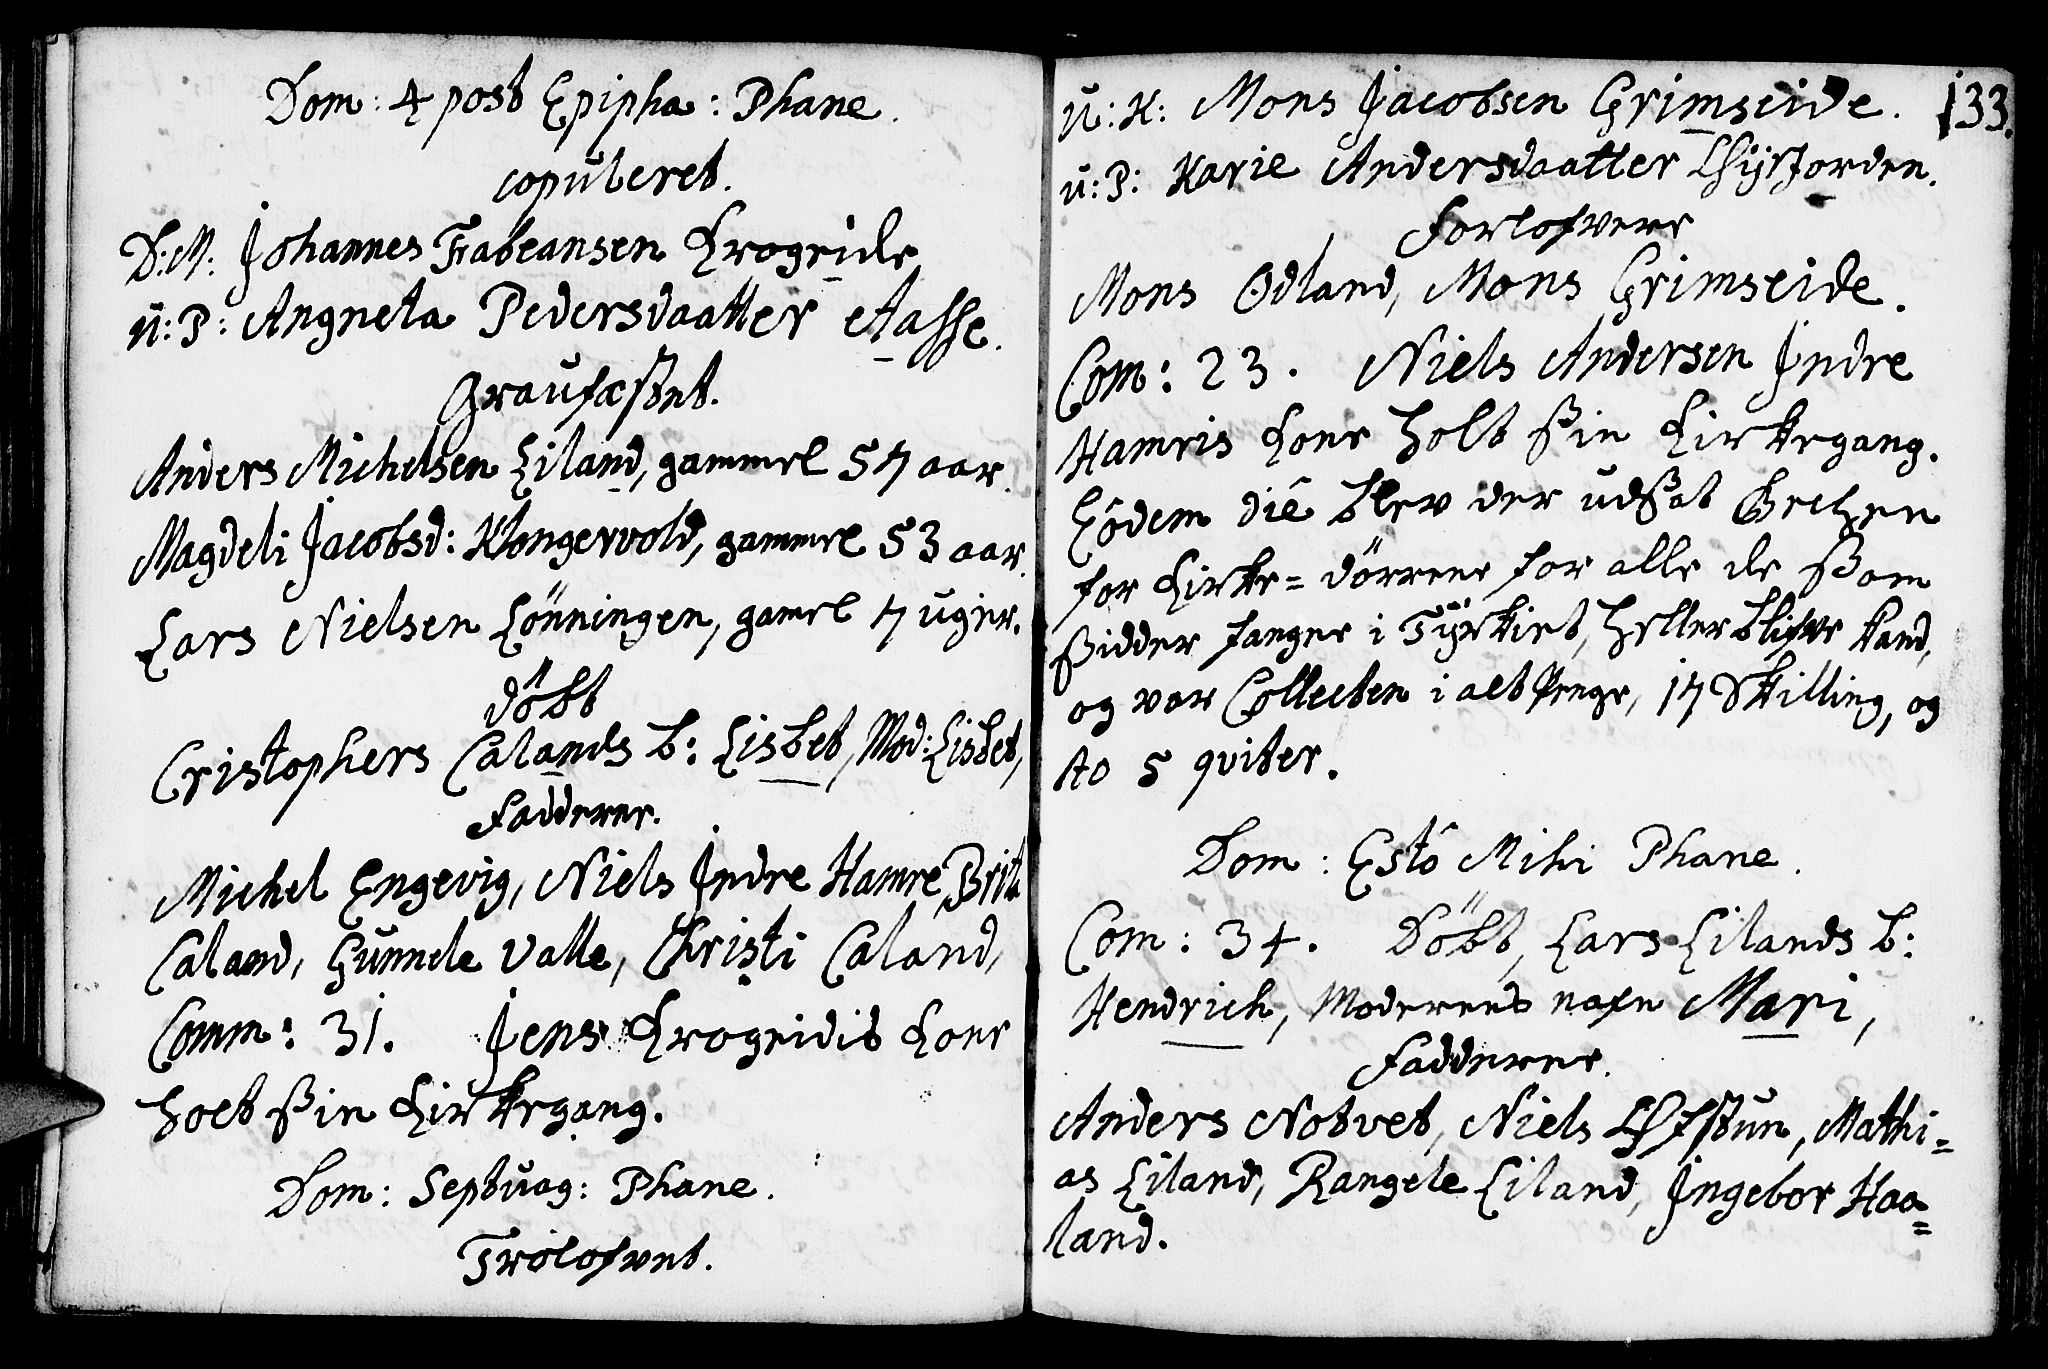 Dom: 4 post Epipha: Phane.
copuleret.
D:M: Johannes Fabeansen Krogeide
u:P: Angneta Pedersdaatter Aasse.
Graufæstet.
Anders Michelsen Liland, gammel 57 aar.
Magdeli Jacobsd: Klongervold, gammel 53 aar.
Lars Nielsen Lönningen, gamel 7 uger.
döbt
Cristophers Calands b: Lisbet, Mod: Lisbet,
Faddere.
Michel Engevig, Niels Indre Hamre, Brita
Caland, Gunnele Valle, Christi Caland,
Comm: 31. Jens Krogeidis Kone
holt sin Kirkegang.
Dom: Septuag: Phane.
Trolofvet.
u:K: Mons Jacobsen Grimseide. 133.
u:P: Karie Andersdaatter
Forlofvere
Mons Odland, Mons Grimseide.
Com: 23. Niels Andersen Indre
Hamris Kone holt sin Kirkegang.
Eodem die blev der udsat Becken
for Kirke=dörrene for alle de som
sidder fanger i Tyrkiet, heller blifve kand,
og var Collecten i alt penge, 17 Skilling, og
to 5 qviter.
Dom: Esto Mihi Phane.
Com: 34. Döbt, Lars Lilands b:
Hendrich, Moderens nafn Mari,
Fadderne.
Anders Notvet, Niels Mathi=
as Liland, Rangele Liland, Ingebor Haa=
land.